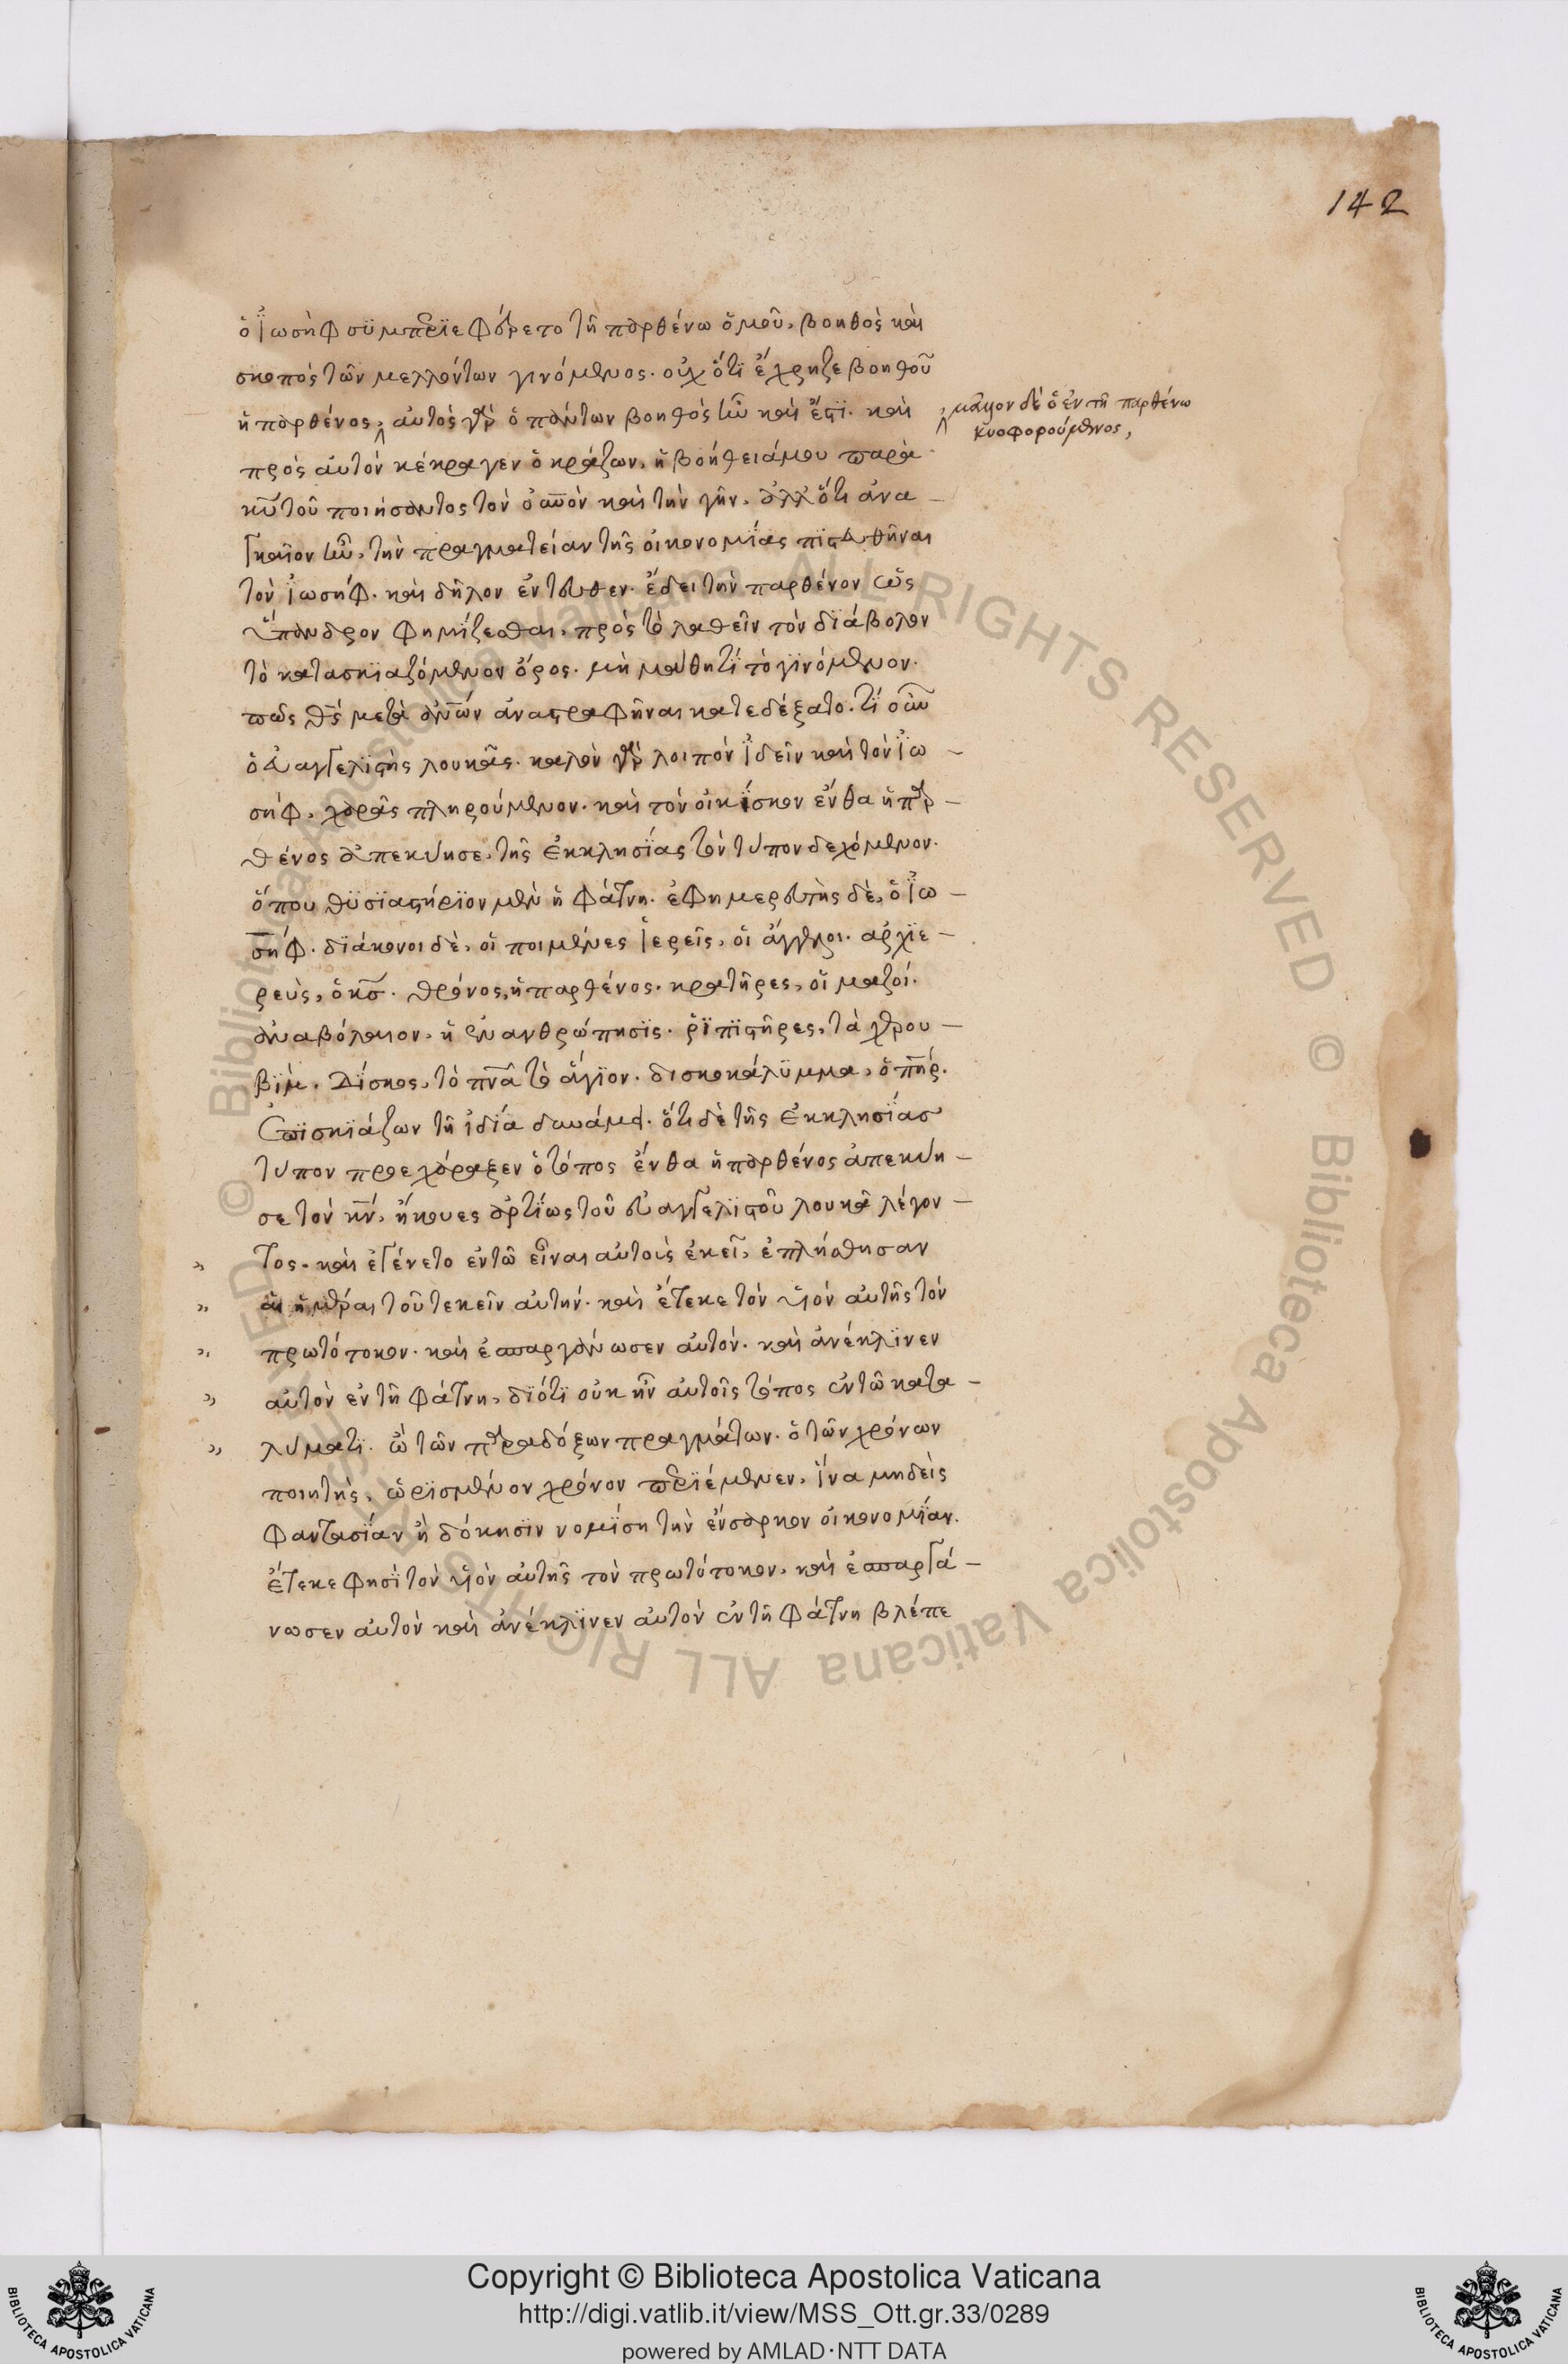 142
ὁ Ἰωσὴφ συμπεριεφέρετο τῆ παρθένω ὁμοῦ, βοηθὸς καὶ
σκοπὸς τῶν μελλόντων γινόμενος. οὐχ ὅτι ἔχρηζε βοηθοῦ
ἡ παρθένος, αὐτὸς γὰρ ὁ πάντων βοηθὸς ἦν καὶ ἔστι. καὶ
μᾶλλον δὲ ὁ ἐν τῆ παρθένω
κυοφορούμενος,
πρὸς αὐτὸν κέκραγεν ὁ κράζων, ἡ βοήθειά μου παρὰ
κυ τοῦ ποιήσαντος τὸν οὐνον καὶ τὴν γῆν. ἀλλ ὅτι ἀνα –
γκαῖον ἦν, τὴν πραγματείαν τῆς οἰκονομίας πιστευθῆναι
τὸν Ἰωσήφ. καὶ δῆλον ἐντεῦθεν. ἔδει τὴν παρθένον ὡς
ὕπανδρον φημίζεσθαι, πρὸς τὸ λαθεῖν τὸν διάβολον
τὸ κατασκιαζόμενον ὄρος. μὴ μάθη τί τὸ γινόμενον.
πῶς θς μετὰ ἀνων ἀναστραφῆναι κατεδέξατο. τί οὖν
ὁ εὐαγγελιστὴς λουκᾶς. καλὸν γὰρ λοιπὸν ἰδεῖν καὶ τὸν Ἰω –
σήφ, χαρᾶς πληρούμενον. καὶ τὸν οἰκίσκον ἔνθα ἡ παρ –
θένος ἀπεκύησε, τῆς ἐκκλησίας τὸν τύπον δεχόμενον.
ὅπου θυσιαστήριον μὲν ἡ φάτνη. ἐφημερευτὴς δὲ, ὁ Ἰω –
σήφ. διάκονοι δὲ, οἱ ποιμένες ἱερεῖς, οἱ ἄγγελοι. αρχιε –
ρεὺς, ὁ κς. θρόνος, ἡ παρθένος. κρατῆρες, οἱ μαζοί.
ἀναβόλαιον, ἡ ἐνανθρώπησις. ῥιπιστῆρες, τὰ χερου –
βίμ. Δίσκος, τὸ πνα τὸ ἅγιον. δισκοκάλυμμα, ὁ πηρ.
ἐπισκιάζων τῆ ἰδία δυνάμει. ὅτι δὲ τῆς ἐκκλησίας
τύπον προεχάραξεν ὁ τόπος ἔνθα ἡ παρθένος ἀπεκύη –
σε τὸν κν, ἤκουες ἀρτίως τοῦ εὐαγγελιστοῦ λουκᾶ λέγον –
» τος. καὶ ἐγένετο ἐν τῶ εἶναι αὐτοὺς ἐκεῖ, ἐπλήσθησαν
» αἱ ἡμέραι τοῦ τεκεῖν αὐτήν. καὶ ἔτεκε τὸν υἱὸν αὐτῆς τὸν
» πρωτότοκον. καὶ ἐσπαργάνωσεν αὐτόν. καὶ ἀνέκλινεν
» αὐτὸν ἐν τῆ φάτνη, διότι οὐκ ἦν αὐτοῖς τόπος ἐν τῶ κατα –
» λύματι. ὢ τῶν παραδόξων πραγμάτων. ὁ τῶν χρόνων
ποιητὴς, ὡρισμένον χρόνον περιέμενεν, ἵνα μηδεὶς
φαντασίαν ἢ δόκησιν νομίση τὴν ἔνσαρκον οἰκονομίαν.
ἔτεκε φησὶ τὸν υἱὸν αὐτῆς τὸν πρωτότοκον, καὶ ἐσπαργά –
νωσεν αὐτὸν καὶ ἀνέκλινεν αὐτὸν ἐν τῆ φάτνη βλέπε
© Biblioteca Apostolica Vaticana ALL RIGHTS RESERVED © Biblioteca Apostolica Vaticana ALL RIGHTS RESERVED
BIBLIOTECA APOSTOLICA VATICANA
Copyright © Biblioteca Apostolica Vaticana
http://digi.vatlib.it/view/MSS_Ott.gr.33/0289
powered by AMLAD·NTT DATA
BIBLIOTECA APOSTOLICA VATICANA